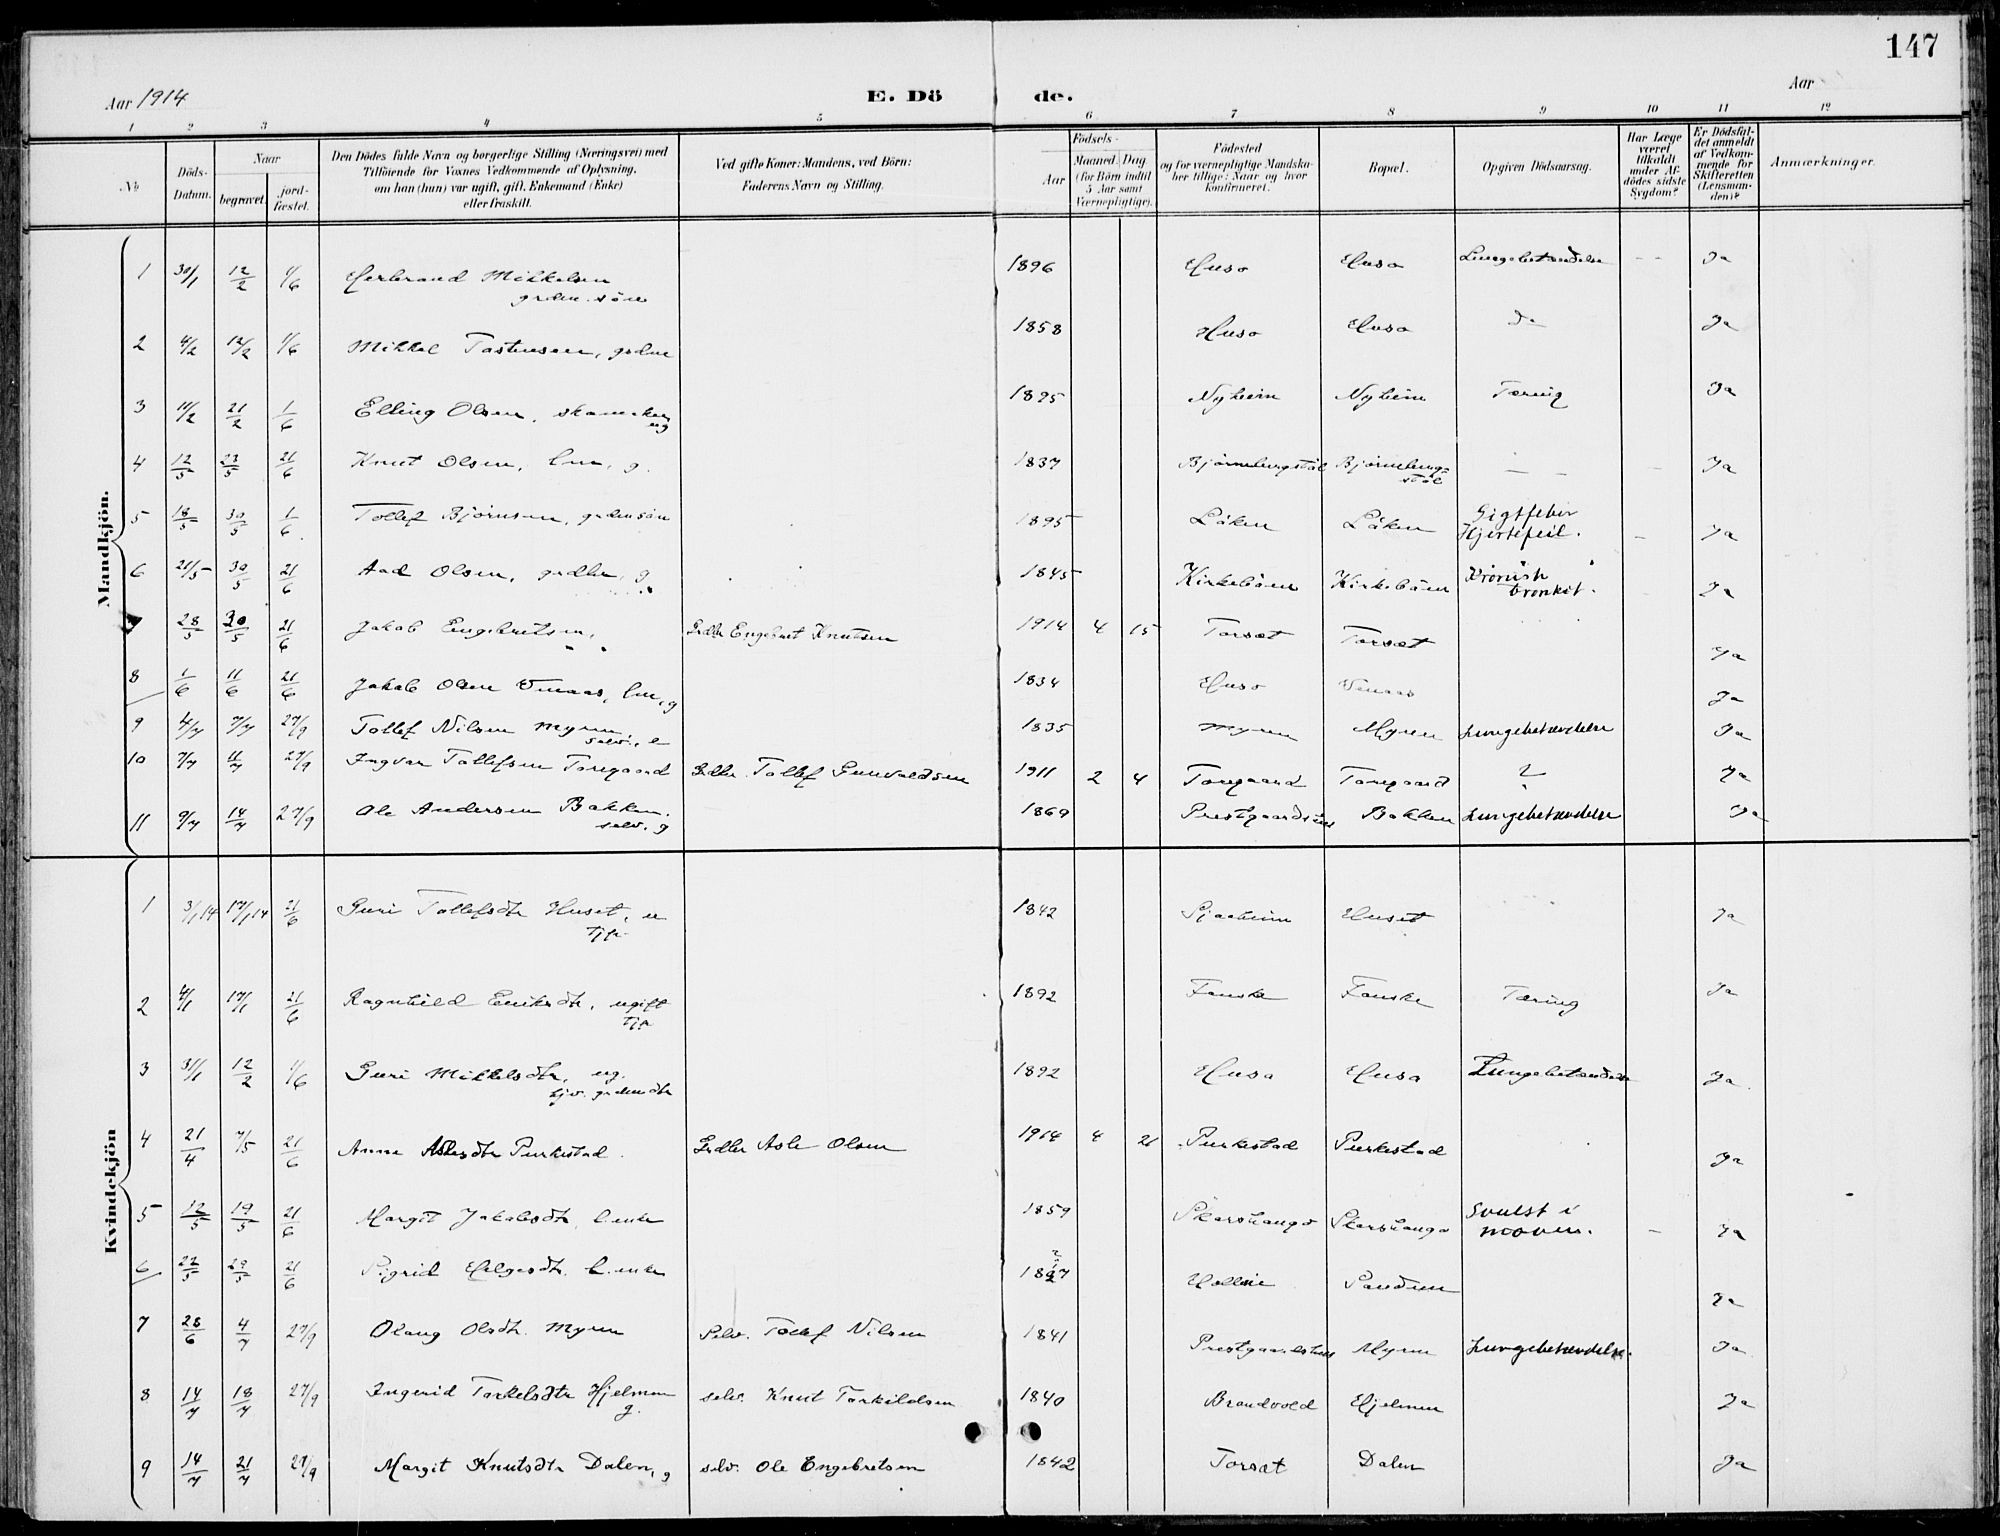 147
Aar 1914
E. Dö de.
Aar
1 2 3 4 5 6 7 8 9 10 11 12
No
Döds-Datum.
Naar
begravet.
jord-fæstet.
Den Dödes fulde Navn og borgerlige Stilling (Næringsvei) med
Tilförende for Voxnes Vedkommende af Oplysning,
om han (hun) var ugift, gift, Enkemand (Enke)
eller fraskilt.
Ved gifte Koner: Mandens, ved Börn:
Faderens Navn og Stilling.
Födsels-
Aar
Maaned. Dag.
(for Börn indtil
5 Aar samt
Værnepligtige).
Födested
og for værnepligtige Mandska-
ber tillige: Naar og hvor
konfirmeret.
Bopæl.
Opgiven Dödsaarsag.
Har Læge
været
tilkaldt
under Af-
dödes sidste
Sygdom?
Er Dödsfal-
det anmeldt
af Vedkom-
mende for
Skifteretten
(Lensman-
den)?
Anmærkninger.
Mandkjön.
1 30/1 12/2 1/6 Herbrand Mikkelsen 1896 Huso Huso Lungebetændelse -- Ja
grdm. sön
2 4/2 12/2 1/6 Mikkel Tostensen, grdm 1858 Huso Huso do Ja
3 11/2 21/2 1/6 Elling Olsen, 1895 Nyheim Nyheim Tæring Ja
ug
4 12/5 23/5 21/6 Knut Olsen, lm, g. 1837 Björneburgstöl Björneburg- — — Ja
stöl
5 18/5 30/5 1/6 Tollef Björnsen, grdmsön 1895 Löken Löken Gigtfeber
Hjertefeil. - Ja
6 21/5 30/5 21/6 Aad Olsen, grdbr, g 1845 Kirkeböen Kirkeböen Kronish
bronkit. Ja
7 28/5 30/5 21/6 Jakob Engebretsen, Grdbr Engebret Knutsen 1914 4 15 Torsæt Torsæt Ja
8 1/6 11/6 21/6 Jakob Olsen Venaas, lm, g 1834 Huso Venaas Ja
9 4/7 7/7 27/9 Tollef Nilsen Myren 1835 Myren Myren Lungebetændelse Ja
selv., e
10 7/7 11/7 27/9 Ingvar Tollefsen Toregaard Grdbr. Tollef Gunvaldsen 1911 2 4 Toregaard Toregaard ? Ja
11 9/7 14/7 27/9 Ole Andersen Bakken. 1869 Prestgaardshus Bakken Lungebetændelse Ja
selv. g
Kvindekjön
1 3/1 14 17/1 14 21/6 Guri Tollefsdtr Huset, u 1842 Sjaaheim Huset Ja
tjp.
2 4/1 17/1 21/6 Ragnhild Eriksdtr, ugift 1892 Fauske Fauske Tæring Ja
tjp
3 31/1 12/2 1/6 Guri Mikkelsdtr, ug. 1892 Huso Huso Lungebetændelse Ja.
tjv. grdmdtr
4 21/4 7/5 21/6 Anne Aslesdtr Purkestad. Grdbr Asle Olsen 1914 4 21 Purkestad Purkestad Ja
5 12/5 19/5 21/6 Margit Jakobsdtr, l.enke 1859 Skarshaugo Skarshaugo Svulst i
maven. — Ja
6 22/5 29/5 21/6 Sigrid Helgesdtr. l.enke Ja
7 28/6 4/7 27/9 Olaug Olsdtr. Myren Selv. Tollef Nilsen 1841 Prestgaardshus Myren Lungebetændelse. Ja
8 14/7 18/7 27/9 Ingerid Torkelsdtr Hjelmen selv. Knut Torkildsen 1840 Brandvold Hjelmen Ja
g.
9 14/7 21/7 27/9 Margit Knutsdtr Dalen, g selv. Ole Engebretsen 1842 Torsæt Dalen Ja